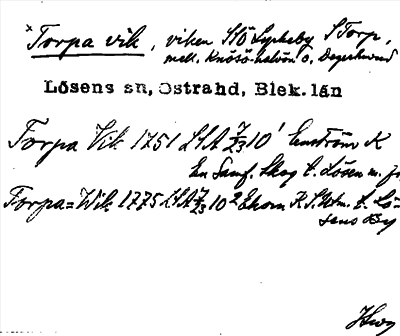 x Torpa vik, viken SSÖ Lyckeby, S Torp,
mell. Knösö halvön o. Degerhamn
Lösens sn, Östrahd, Blek. län
Torpa Vik 1751 LSA 7/23 10' Enström K
En Samf. Skog t. Lösen m. fl
Torpa=Wik 1775 LSA 7/23 10² Ekorn K S.Hlm. t. Lö-
sens By